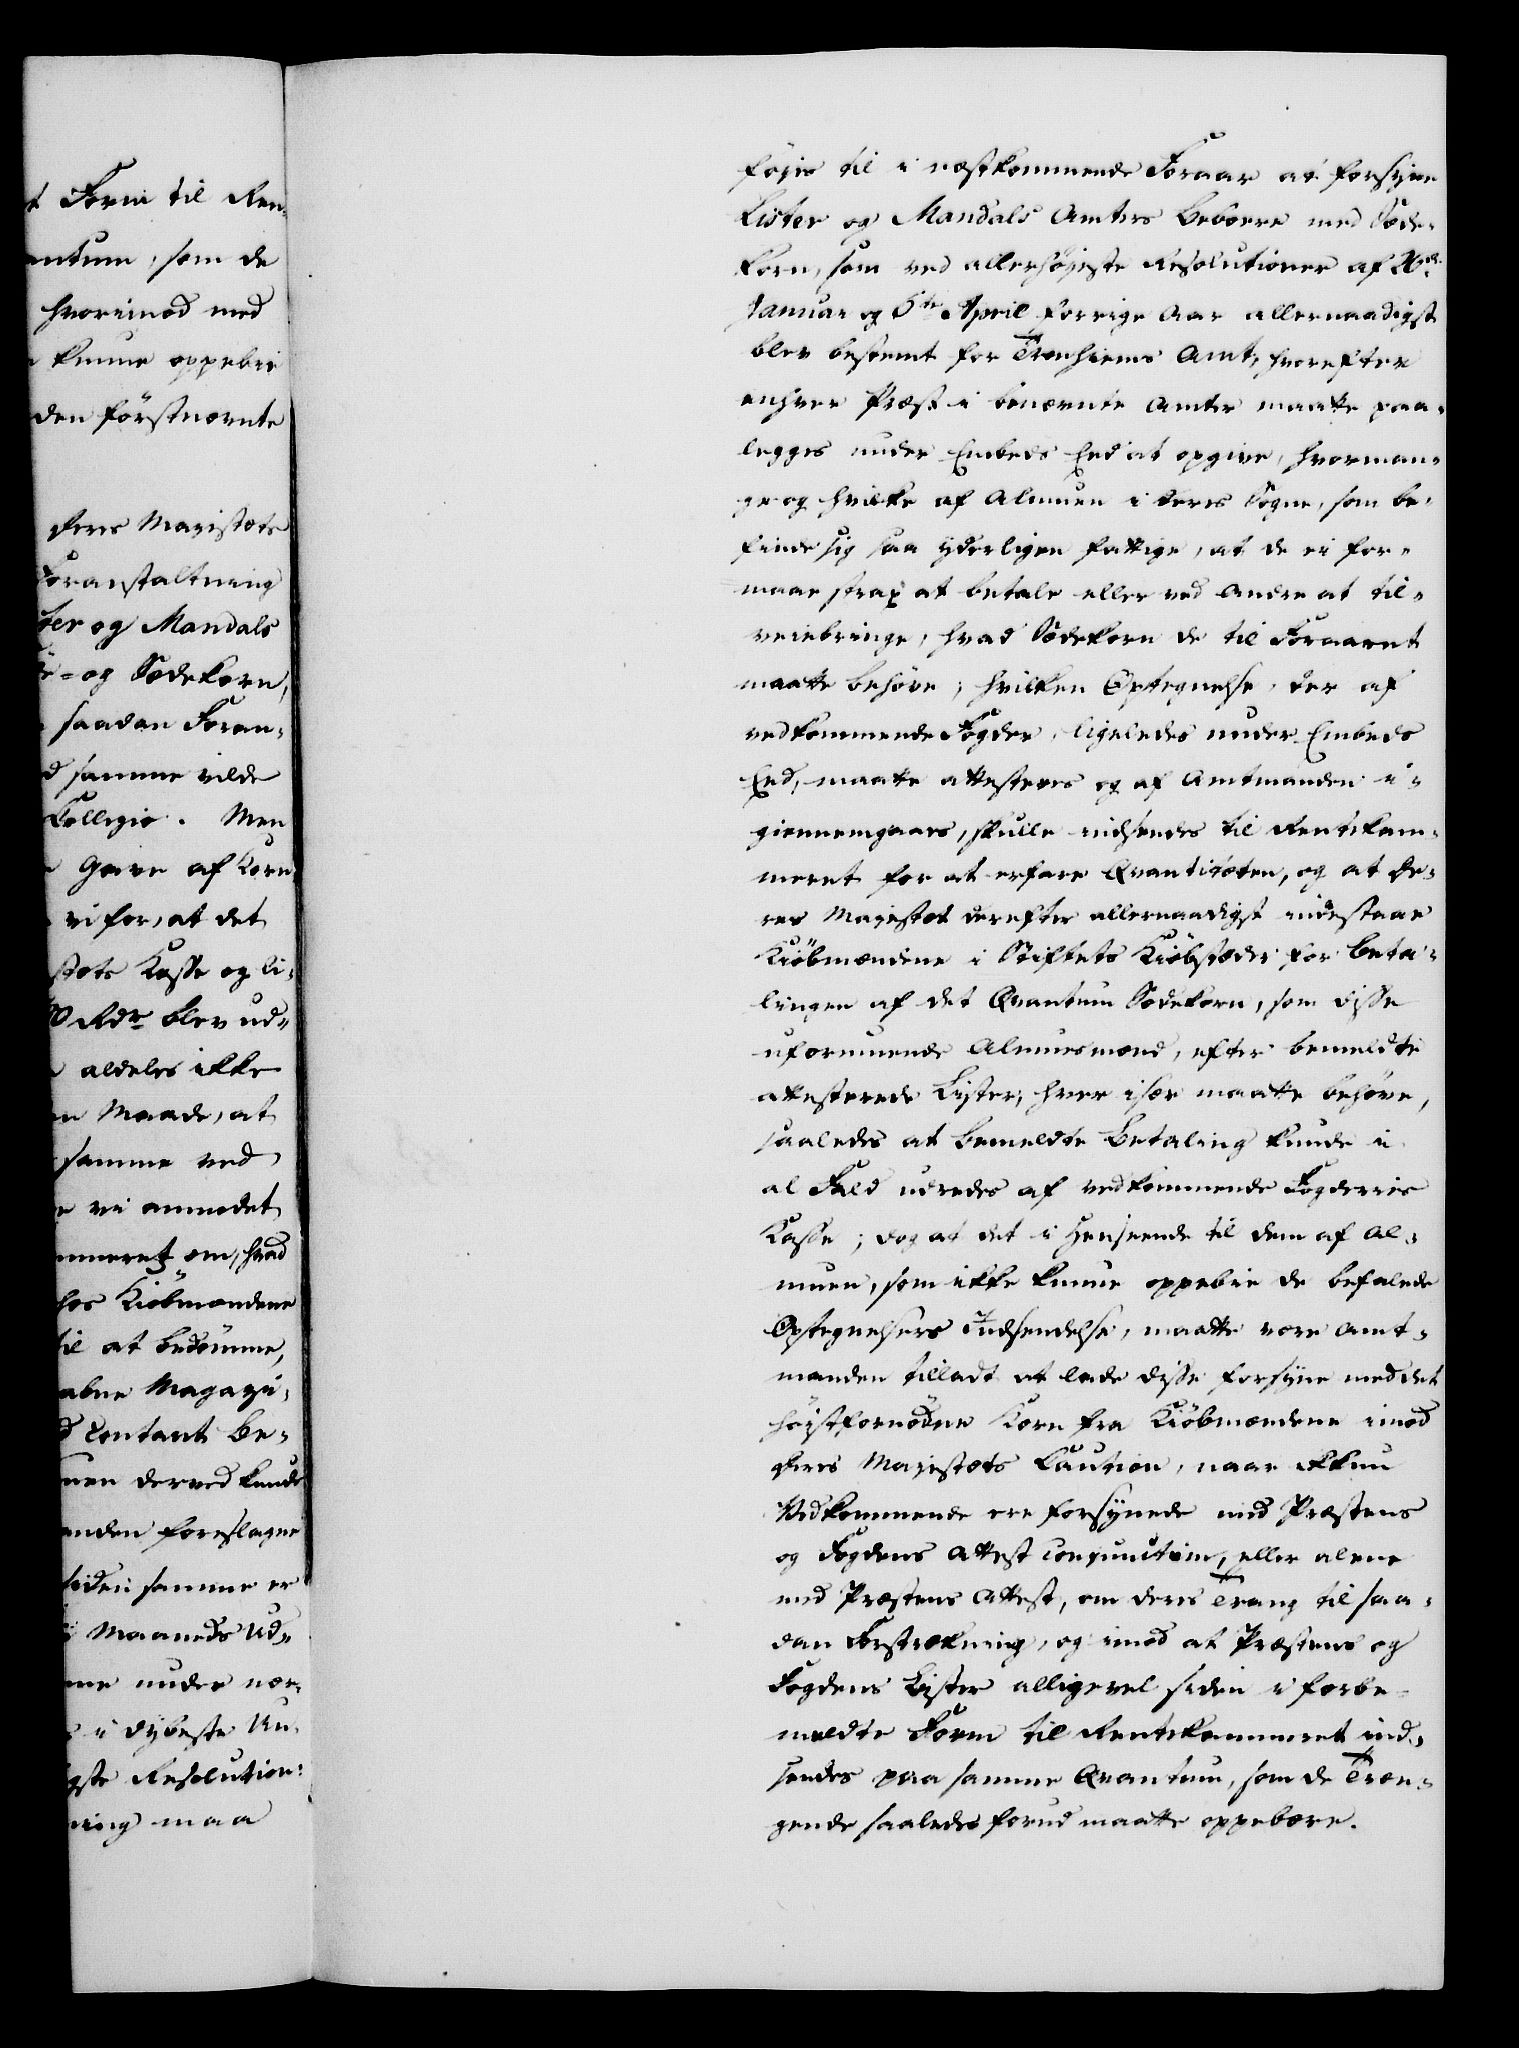 t Form til Ren-
antum, som de
hvorimod med
kunne oppebie
den förstnævnte
Deres Majestæts
Foranstaltning
ter og Mandals
e- og Sædekorn,
saadan Foran-
d samme vilde
Collegio. Men
Gave af Korn
vi for, at det
stæts Kasse og li-
0 Rdr blev ud-
aldeles ikke
en Maade, at
samme ved
e vi anmodet
mmeret om, hvad
hos Kiöbmændene
til at bedömme,
abne Magazi-
d Contant Be-
nen derved kunde
anden foreslagne
siden samme er
Maaneds Ud-
me under nær-
s i dybeste Un-
gste Resolution:
ning maa
föje til i næstkommende Foraar at forsyne
Lister og Mandals Amters Beboere med Sæde-
korn, som ved allerhöjeste Resolutioner af 20de
Januar og 6te April forrige Aar allernaadigst
blev bestemt for Tronhiems Amt, hvorefter
enhver Præst i benævnte Amter maatte paa-
legges under Embeds Eed at opgive, hvorman-
ge og hvilke af Almuen i deres Sogne, som be-
finde sig saa yderligen fattige, at de ei for-
maae strax at betale eller ved Andre at til-
veiebringe, hvad Sædekorn de til Foraaret
maatte behöve; hvilken Optegnelse, der af
vedkommende Fogder, ligeledes under Embeds
Eed, maatte attesteres og af Amtmanden i-
giennemgaaes, skulle indsendes til Rentekam-
meret for at erfare Qvantiteten, og at De-
res Majestæt derefter allernaadigst indestaaer
Kiöbmændene i Stiftets Kiöbstæder for Beta-
lingen af det Qvantum Sædekorn, som disse
uformuende Almuesmænd, efter bemeldte
attesterede Lister, hver især maatte behöve,
saaledes at bemeldte Betaling kunde i
al Fald udredes af vedkommende Fogderies
Kasse; dog at det i Henseende til dem af Al-
muen, som ikke kunne oppebie de befalede
Optegnelsers Indsendelse, maatte være Amt-
manden tilladt at lade disse forsyne med det
höistfornödne Korn fra Kiöbmændene imod
Deres Majestæts Caution, naar ikkun
Vedkommende ere forsynede med Præstens
og Fogdens Attest conjunctim, eller alene
med Præstens Attest, om deres Trang til saa-
dan Forstrækning, og imod at Præstens og
Fogdens Lister alligevel siden i forbe-
meldte Form til Rentekammeret ind-
sendes paa samme Qvantum, som de Træn-
gende saaledes forud maatte oppebære.